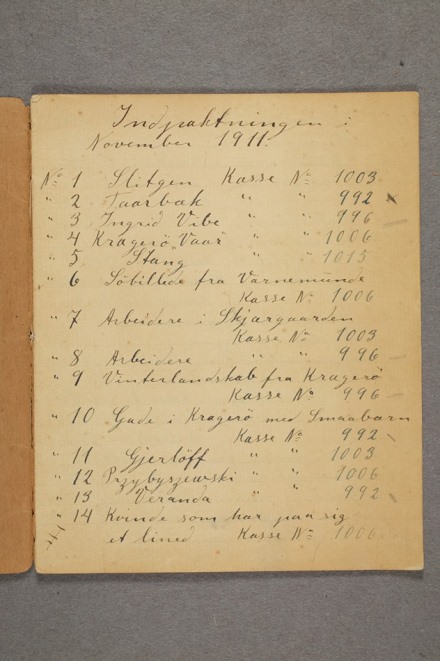 Indpaktningen i
November 1911.
No 1 Slitgen Kasse No 1003
" 2 Taarbæk " " 992
" 3 Ingrid Vibe " " 996
" 4 Kragerö Vaar " " 1006
" 5 Stang " " 1015
" 6 Söbillede fra Varnemünde
Kasse No 1006
" 7 Arbeidere i Skjærgaarden
Kasse No 1003
" 8 Arbeidere " " 996
" 9 Vinterlandskab fra Kragerö
Kasse No 996
" 10 Gade i Kragerö med Smaabarn
Kasse No 992
" 11 Gjerlöff " " 1003
" 12 Przybyszewski " " 1006
" 13 Veranda " " 992
" 14 Kvinde som har paa sig
et lined Kasse No 1006